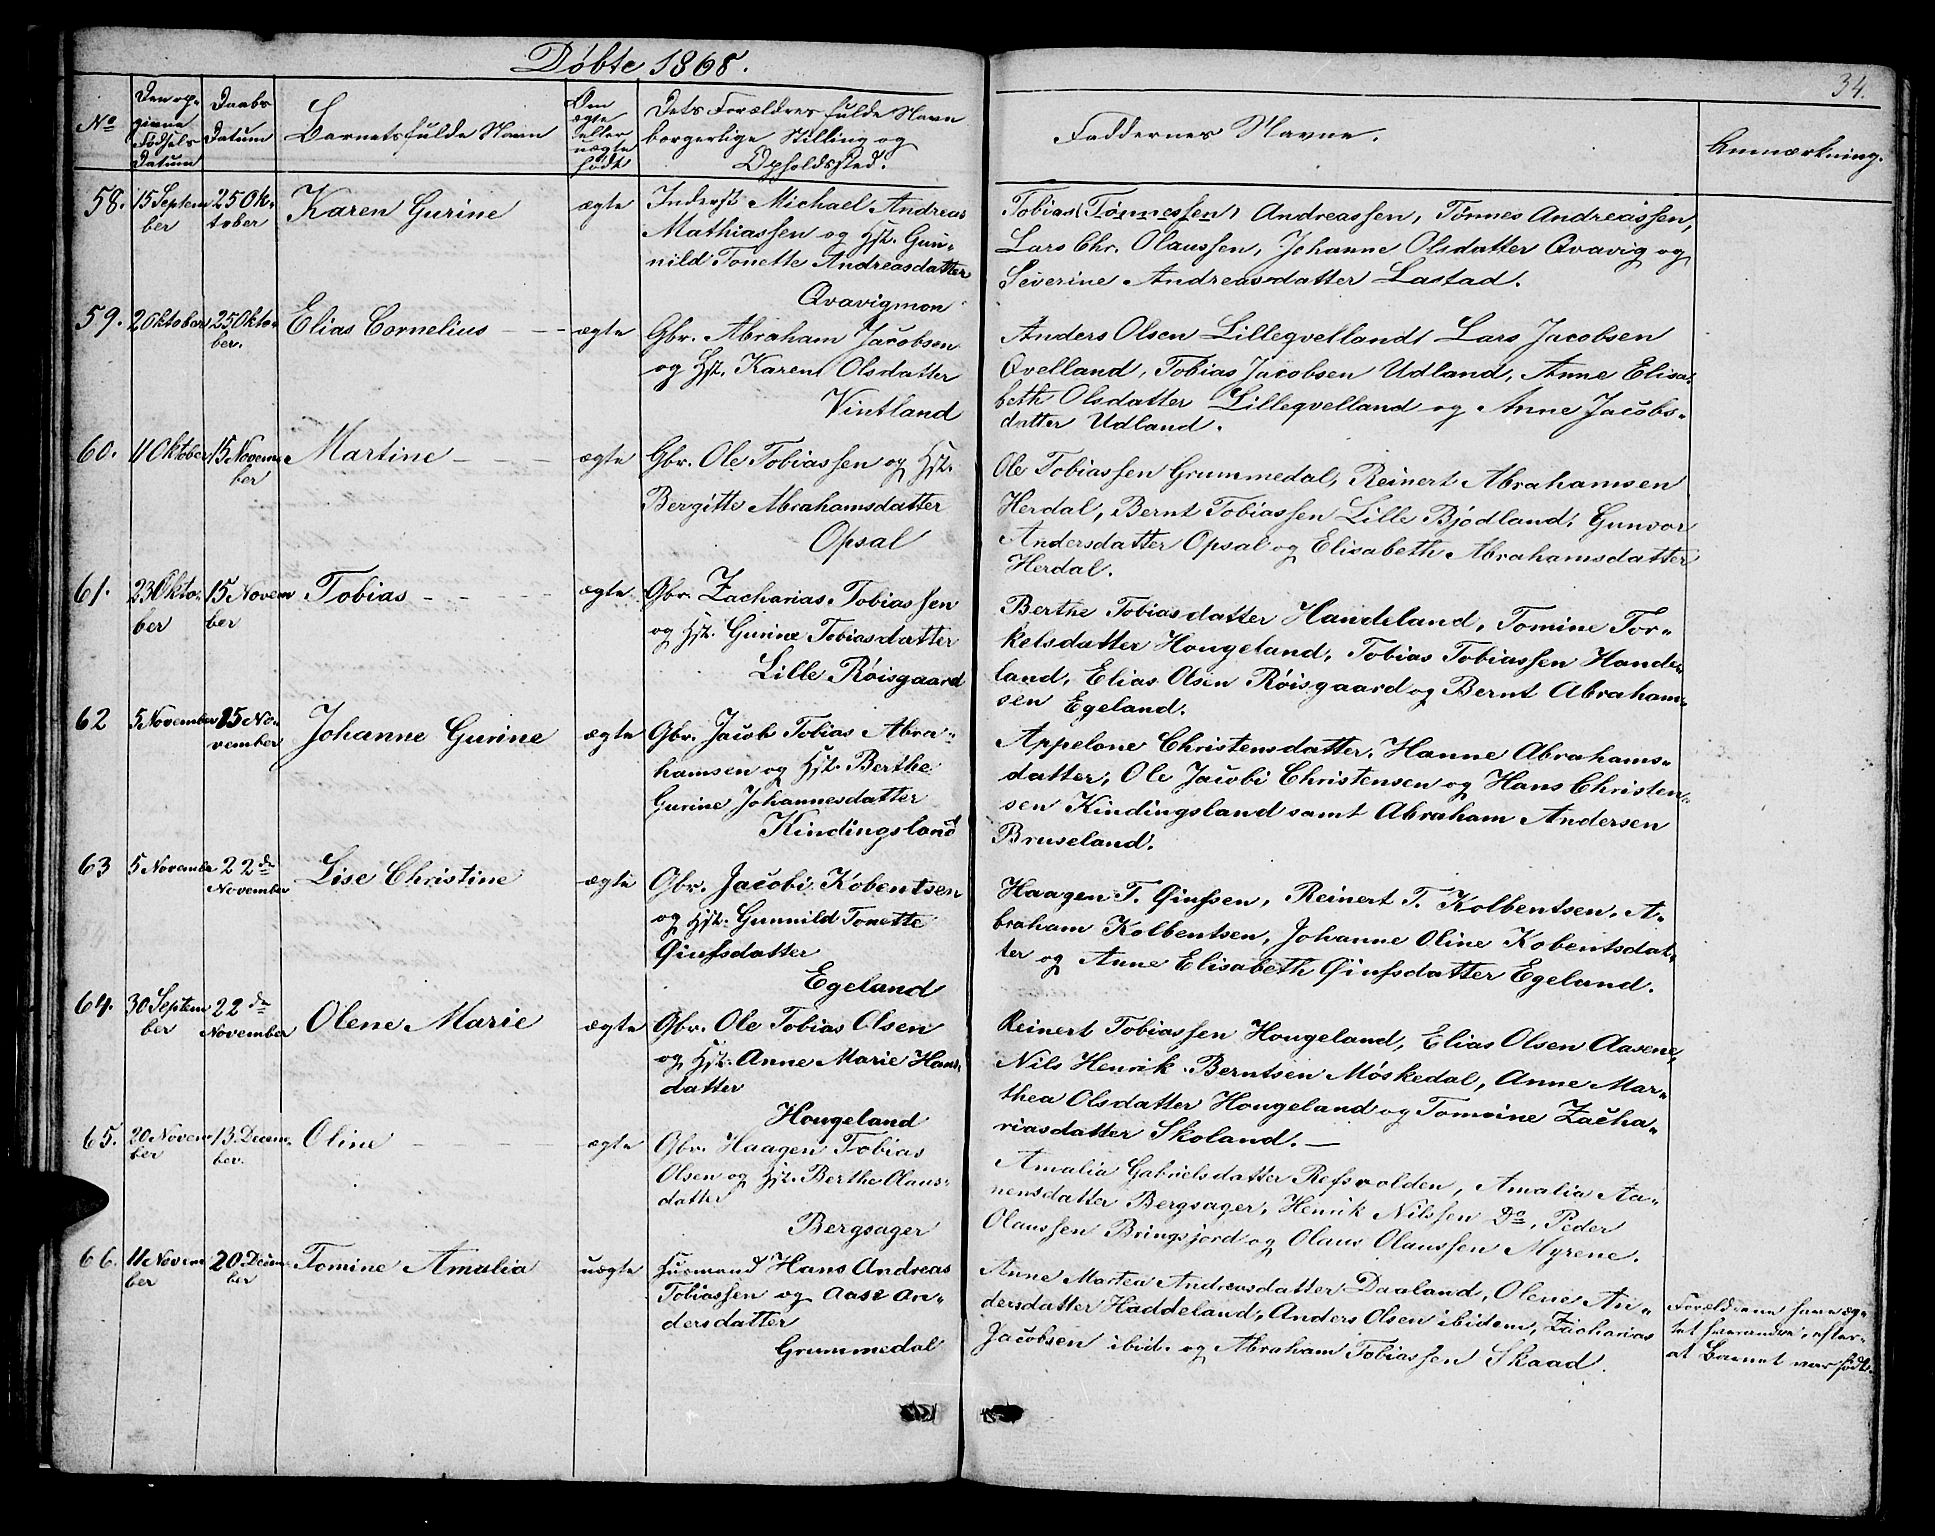 Døbte 1868.
34.
No
Den op-
givne
Fødsels
Datum
Daabs
Datum
Barnets fulde Navn
Om
ægte
eller
uægte
født
Dets Forældres fulde Navn
borgerlige Stilling og
Opholdssted.
Faddernes Navne.
Anmærkning.
58. 15 Septem
ber
25 Ok-
tober
Karen Gurine
ægte
Inderst Michael Andreas
Mathiassen og Hst. Gun-
nild Tonette Andreasdatter
Qvavigmon
Tobias (Tønnessen) Andreassen, Tønnes Andreassen,
Lars Chr. Olaussen, Johanne Olsdatter Qvavig og
Severine Andreasdatter Lastad.
59. 2 Oktober
25 Okto-
ber.
Elias Cornelius
ægte
Gbr. Abraham Jacobsen
og Hst. Karen Olsdatter
Vintland
Anders Olsen Lilleqvelland, Lars Jacobsen
Qvelland, Tobias Jacobsen Udland, Anne Elisa-
beth Olsdatter Lilleqvelland og Anne Jacobs-
datter Udland.
60. 11 Oktober
15 Novem-
ber
Martine
ægte
Gbr. Ole Tobiassen og Hst.
Bergitte Abrahamsdatter
Opsal
Ole Tobiassen Grummedal, Reinert Abrahamsen
Herdal, Bernt Tobiassen Lille Bjødland, Gunvor
Andersdatter Opsal og Elisabeth Abrahamsdatter
Herdal.
61. 23 Okto-
ber
15 Novem
ber
Tobias
ægte
Gbr. Zacharias Tobiassen
og Hst. Gurine Tobiasdatter
Lille Røisgaard
Berthe Tobiasdatter Handeland, Tomine Tor-
kelsdatter Hougeland, Tobias Tobiassen Hande-
land, Elias Olsen Røisgaard og Bernt Abraham-
sen Egeland.
62 5 November
15 No-
vember
Johanne Gurine
ægte
Gbr. Jacob Tobias Abra-
hamsen og Hst. Berthe
Gurine Johannesdatter
Kindingsland
Appelone Christensdatter, Hanne Abrahams-
datter, Ole Jacobi Christensen og Hans Christen-
sen Kindingsland samt Abraham Andersen
Bruseland.
63 5 November
22de
November
Lise Christine
ægte
Gbr. Jacobi Kobentsen
og Hst. Gunnild Tonette
Giufsdatter
Egeland
Haagen T. Giufsen, Reinert T. Kolbentsen, A-
braham Kolbentsen, Johanne Oline Kobentsdat-
ter og Anne Elisabeth Giufsdatter Egeland.
64. 30 Septem
ber
22de
November
Olene Marie
ægte
Gbr. Ole Tobias Olsen
og Hst. Anne Marie Hans-
datter
Hougeland
Reinert Tobiassen Hougeland, Elias Olsen Aasene,
Nils Henrik Berntsen Møskedal, Anne Mar-
thea Olsdatter Hougeland og Tomine Zacha-
riasdatter Skoland.
65. 20 Novem
ber
13. Decem-
ber.
Oline
ægte
Gbr. Haagen Tobias
Olsen og Hst. Berthe Olaus-
datter
Bergsager
Amalia Gabrielsdatter Refsvolden, Amalia Aa-
nensdatter Bergsager, Henrik Nilssen Do, Peder
Olaussen Bringsjord og Olaus Olaussen Myrene.
66. 11 Novem
ber
20 Decem-
ber
Tomine Amalia
uægte
Husmand Hans Andreas
Tobiassen og Aase An-
dersdatter
Grummedal
Anne Martea Andreasdatter Daaland, Olene An-
dersdatter Haddeland, Anders Olsen ibidem, Zacharias
Jacobsen ibid. og Abraham Tobiassen Skaad.
Forældrene have æg-
tet hverandre, efter-
at Barnet var født.